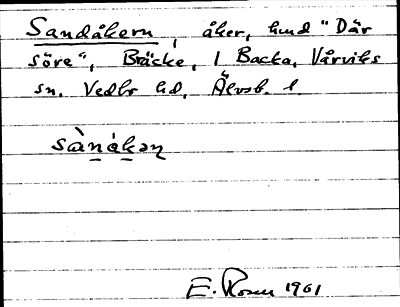 Sandåkern, åker, kund "Där
söre", Bräcke, 1 Backa, Vårviks
sn. Vedbo hd, Älvsb. l.
sànákəɳ
E. Rosen 1961